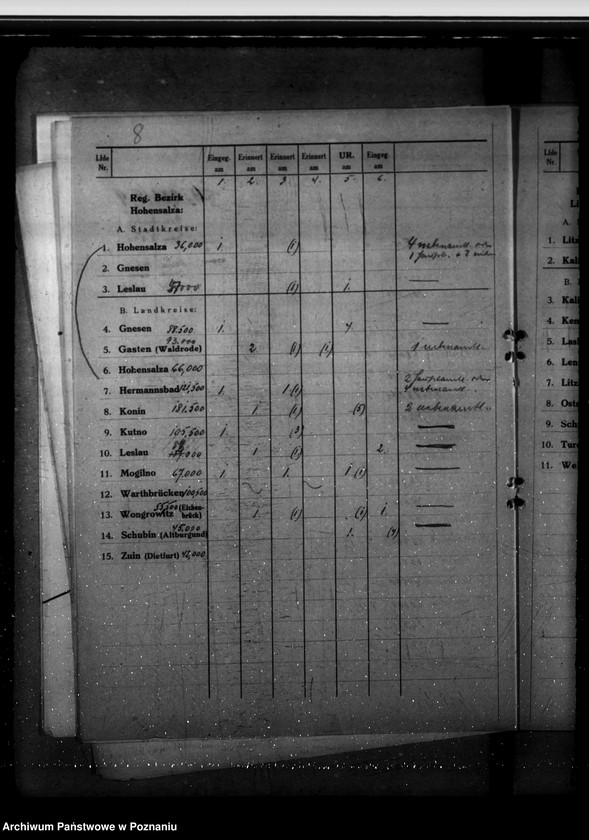 8
Lfde Nr. Eingeg. am Erinnert am Erinnert am Erinnert am UR. am Eingeg. am
1. 2. 3. 4. 5. 6.
Reg. Bezirk
Hohensalza:
A. Stadtkreise:
1. Hohensalza 36,000 1. (1)
2. Gnesen
3. Leslau (1) 1.
B. Landkreise:
4. Gnesen 88.500 1.
93.000
5. Gasten (Waldrode) 2 (1) (1) 1
6. Hohensalza 66,000
7. Hermannsbad 121,500 1. 1 (1)
8. Konin 181.500 1 (1) (5) 2
9. Kutno 105,500 1. (3)
10. Leslau 1 (1) 2.
11. Mogilno 67,000 1 1. 1 (1)
12. Warthbrücken 100,500
13. Wongrowitz 55,500 (Eichenbrück) 1. (1) (1) 1
45.000
14. Schubin (Altburgund) 1.
15. Zuin (Dietfurt)
1. Litz
2. Kali
3. Kali
4. Ken
5. Las
6. Len
7. Litz
8. Oste
9. Sch
10. Ture
11. We
Archiwum Państwowe w Poznaniu